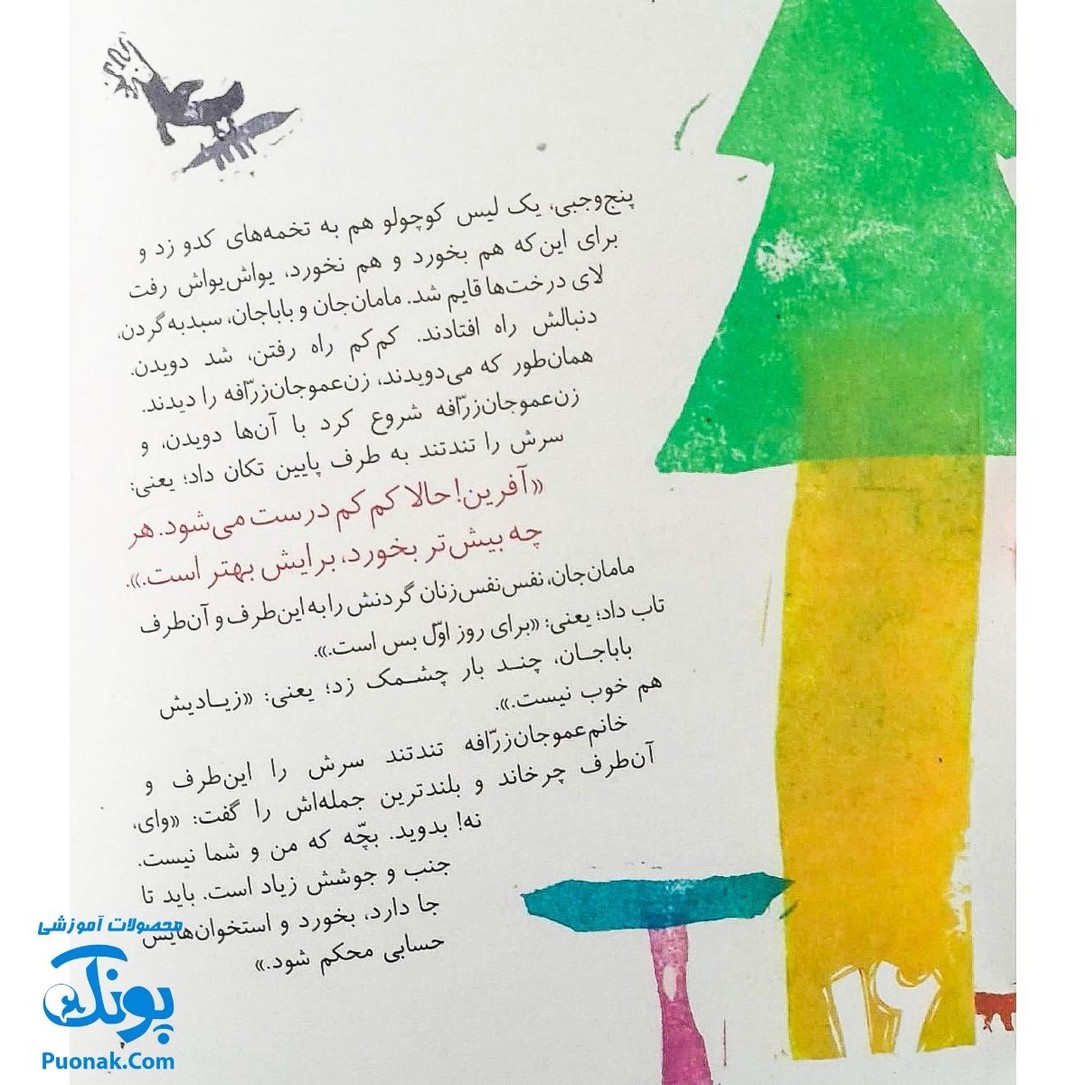 پنج‌وجبی، یک لیس کوچولو هم به تخمه‌های کدو زد و
برای این‌که هم بخورد و هم نخورد، یواش‌یواش رفت
لای درخت‌ها قایم شد. مامان‌جان و باباجان، سبدبه‌گردن،
دنبالش راه افتادند. کم‌کم راه رفتن، شد دویدن.
همان‌طور که می‌دویدند، زن‌عموجان‌زرّافه را دیدند.
زن‌عموجان‌زرّافه شروع کرد با آن‌ها دویدن، و
سرش را تندتند به طرف پایین تکان داد؛ یعنی:
«آفرین! حالا کم کم درست می‌شود. هر
چه بیش‌تر بخورد، برایش بهتر است.».
مامان‌جان، نفس‌نفس‌زنان گردنش را به این‌طرف و آن‌طرف
تاب داد؛ یعنی: «برای روز اوّل بس است.».
باباجـان، چنـد بار چشـمک زد؛ یعنی: «زیـادیش
هم خوب نیست.».
خانم‌عموجان‌زرّافه تندتند سرش را این‌طرف و
آن‌طرف چرخاند و بلندترین جمله‌اش را گفت: «وای،
نه! بدوید. بچّه که من و شما نیست.
جنب و جوشش زیاد است. باید تا
جا دارد، بخورد و استخوان‌هایش
حسابی محکم شود.»
محصولات آموزشی
پونک
Puonak.Com